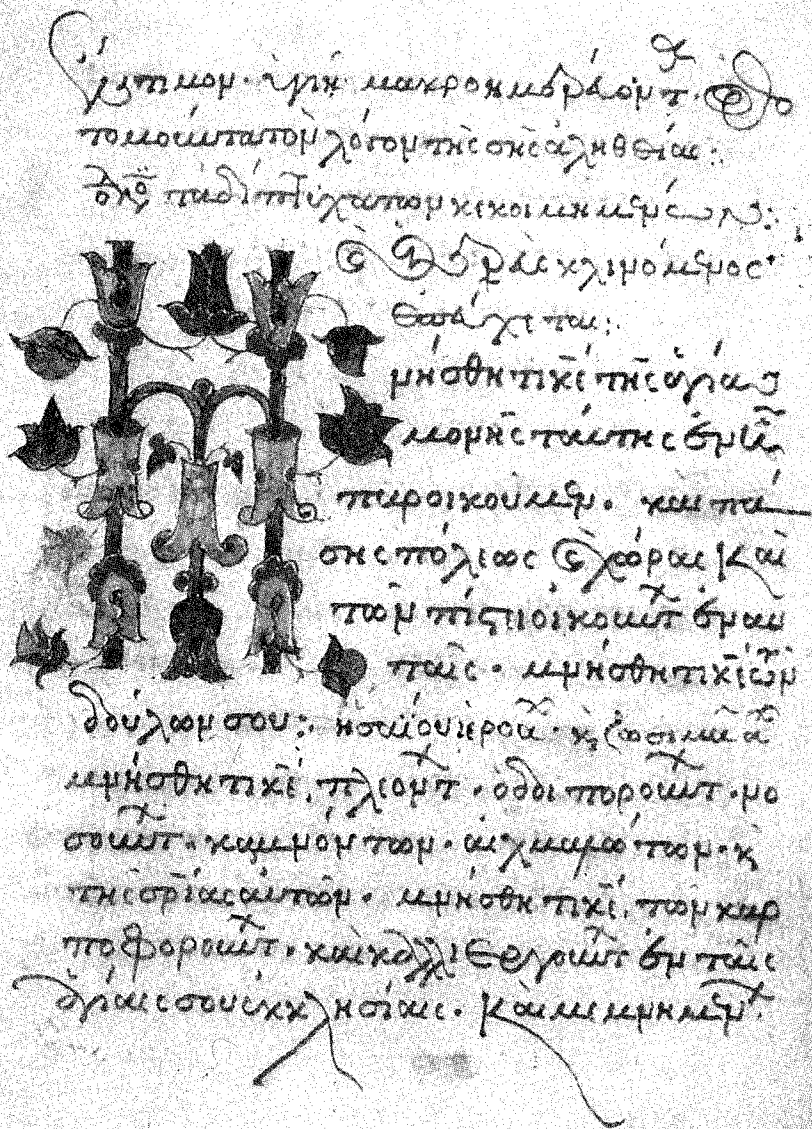 ἔντιμον· ὑγιῆ· μακροημερεύοντ· ὀρθο
τομοῦντα τὸν λόγον τῆς σῆς ἀληθείας:
τὰ δίπτυχα τῶν κεκοιμημένων:
ὁ ἱερεὺς κλινόμενος
ἐπεύχεται:
μνήσθητι κε τῆς ἁγίας
μονῆς ταύτης ἐν ᾗ
παροικοῦμεν. καὶ πά
σης πόλεως καὶ χώρας καὶ
τῶν πίστει οἰκούντ ἐν αυ
ταῖς. μνήσθητι κε τῶν
δούλων σου:
μνήσθητι κε, πλεόντ. ὁδοιπορούντ. νο
σούντ. καμνόντων. αἰχμαλώτων. κ
τῆς σρίας αὐτῶν. μνήσθητι κε, τῶν καρ
ποφορούντ. καὶ καλλιεργούντ ἐν ταῖς
ἁγίαις σου ἐκκλησίαις. καὶ μεμνημέν